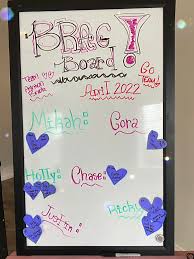 BRAG
Board!
Go
Team!
April 2022
Mikah:
Cora:
Holly:
Chase:
Justin:
Ricky: